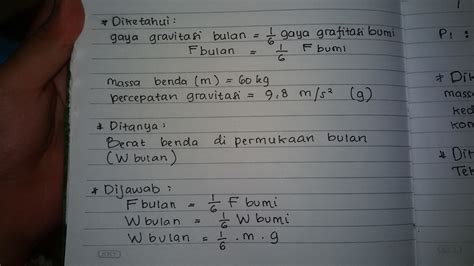 * Diketahui :
gaya gravitasi bulan = 1/6 gaya grafitasi bumi
F bulan = 1/6 F bumi
massa benda (m) = 60 kg
percepatan gravitasi = 9,8 m/s² (g)
* Ditanya :
Berat benda di permukaan bulan
(W bulan)
* Dijawab :
F bulan = 1/6 F bumi
W bulan = 1/6 W bumi
W bulan = 1/6 . m . g
P1 :
* Dik
massa
ked
kon
* Dit
Tek